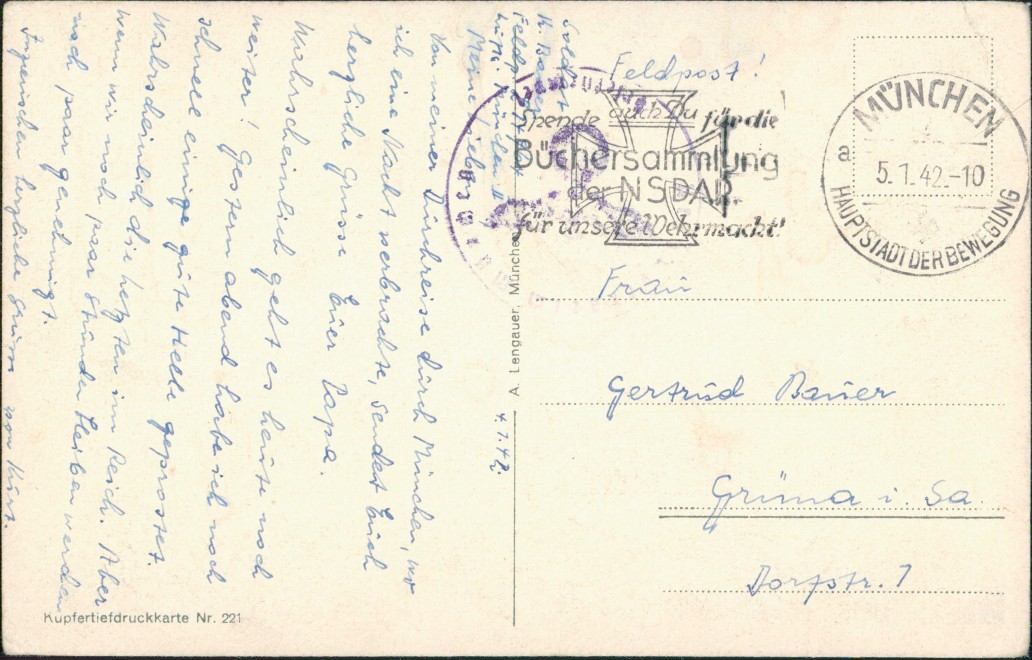 Soldat
K. Bauer
Feldp.
München
4.1.42.
Meine Lieben
Von meiner Durchreise durch München, wo
ich eine Nacht verbrachte, sendet Euch
herzliche Grüsse Euer Papa.
Wahrscheinlich geht es heute noch
weiter! Gestern abend habe ich noch
schnell einige gute Helle geprostet.
Wahrscheinlich die letzten im Reich. Aber
wenn wir noch paar Stunden bleiben werden
noch paar genehmigt.
Inzwischen herzliche Grüsse von Kurt.
Kupfertiefdruckkarte Nr. 221
A. Lengauer, München
Feldpost!
Spende auch Du für die
Büchersammlung
der NSDAP.
für unsere Wehrmacht!
MÜNCHEN
a
5.1.42.-10
HAUPTSTADT DER BEWEGUNG
Frau
Gertrud Bauer
Grüna i. Sa.
Dorfstr. 7